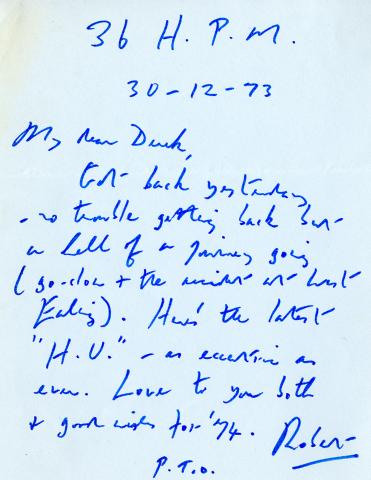 36 H. P. M.
30-12-73
My dear Derek,
Got back yesterday
- no trouble getting back but
a hell of a journey going
(go-slow + the accident at West
Ealing). Here's the latest
"H.U." - as eccentric as
ever. Love to you both
& good wishes for '74. Robert
P.T.O.